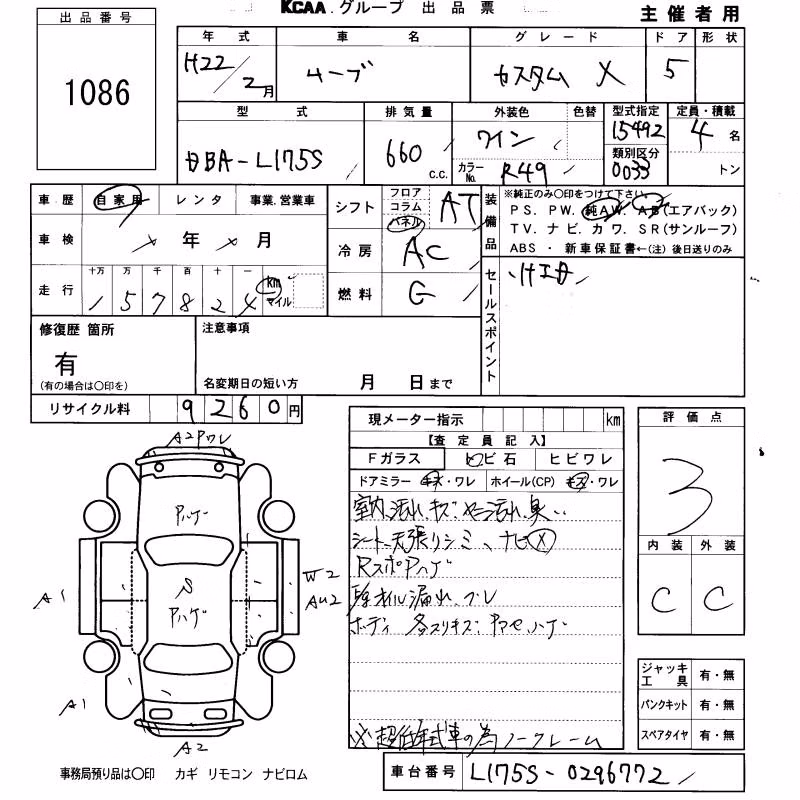 KCAA.グループ 出品票
主催者用
出品番号
1086
年式 車名 グレード ドア 形状
H22/2月 ムーブ カスタム X 5
型式 排気量 外装色 色替 型式指定 定員・積載
DBA-L175S 660 c.c. ワイン 15492 4名
カラーNo. R49 類別区分 0033 トン
車歴 自家用 レンタ 事業.営業車
シフト フロア コラム パネル AT
装備品 ※純正のみ〇印をつけて下さい
PS. PW. 純AW. AB(エアバック)
TV. ナビ. カワ. SR(サンルーフ)
ABS ・ 新車保証書←(注) 後日送りのみ
車検 年 月
冷房 AC
走行 十万 万 千 百 十 一
157824 km マイル
燃料 G
セールスポイント
修復歴 箇所
有
(有の場合は〇印を)
注意事項
名変期日の短い方 月 日まで
リサイクル料 9260円
現メーター指示 km
【査定員記入】
Fガラス トビ石 ヒビワレ
ドアミラー キズ・ワレ ホイール(CP) キズ・ワレ
シート天張りシミ、ナビX
RスポPハゲ
オイル漏れ
ボディ 各スリキズ
※超低年式車の為ノークレーム
評価点
3
内装 外装
C C
ジャッキ工具 有・無
パンクキット 有・無
スペアタイヤ 有・無
車台番号 L175S-0296772
A2Pワレ
Pハゲ
S
Pハゲ
A1
W2
AU2
A1
A2
事務局預り品は〇印 カギ リモコン ナビロム